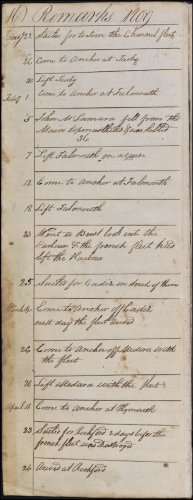 16) Remarks 1809
Jany 23 Sailes for to Join the Channel fleet
24 Come to Anchor at Torby
31 Left Torby
Feby 1 Come to Ancher at Falmouth
5 John McLamara fell from the
Main topmasthead & was killed
36
7 Left Falmouth on a cruse
12 Come to Ancher at Falmouth
18 Left Falmouth
23 Went to Brest lock into the
harbour & the french fleet had
left the Harbour
25 Sailes for Cadiz in search of them
March 4 Come to Ancher off Cadiz
next day the fleet arived
26 Come to Ancher off Medara with
the fleet
28 Left Medara with the fleet
April 18 Come to Ancher at Plymouth
23 Sailes for Rochford 2 days before the
french fleet was Destroyed
26 Arived at Rochford